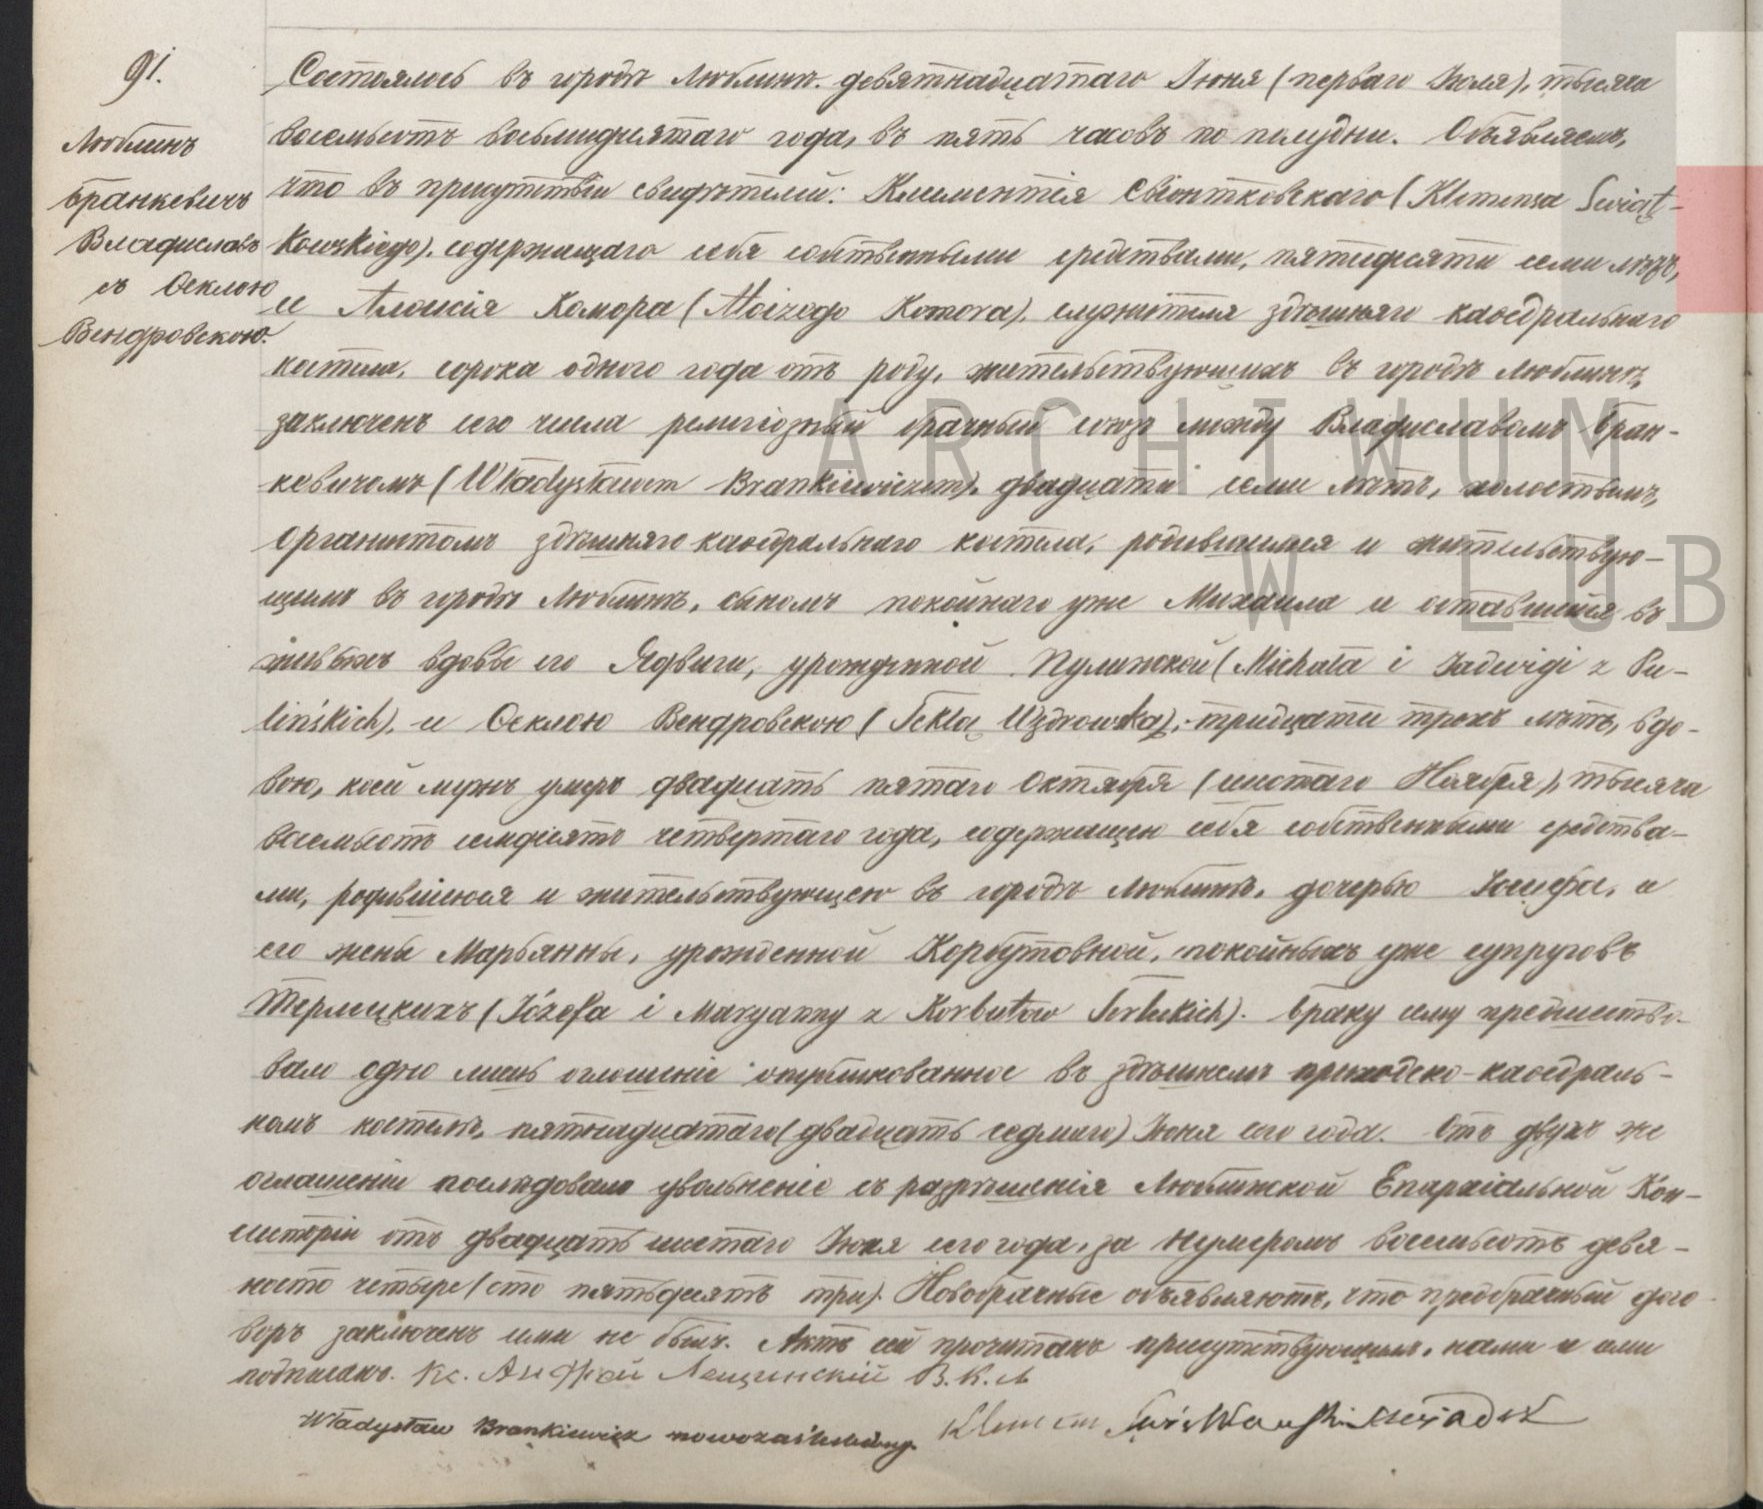 91.
Люблинъ
Бранкевичъ
Владиславъ
съ Ѳеклою
Вендровскою.
Состоялось въ городѣ Люблинѣ девятнадцатаго Іюня (перваго Іюля), тысяча
восемьсотъ восьмидесятаго года, въ пять часовъ по полудни. Объявляемъ,
что въ присутствіи свидѣтелей: Климентія Свіонтковскаго (Klemensa Świąt-
kowskiego), содержащаго себя собственными средствами, пятидесяти семи лѣтъ,
и Алоисія Комора (Aloizego Komora), служителя здѣшняго каѳедральнаго
костела, сорока одного года отъ роду, жительствующихъ въ городѣ Люблинѣ,
заключенъ сего числа религіозный брачный союзъ между Владиславомъ Бран-
кевичомъ (Władysławem Brankiewiczem), двадцати семи лѣтъ, холостымъ,
органистомъ здѣшняго каѳедральнаго костела, родившимся и жительствую-
щимъ въ городѣ Люблинѣ, сыномъ покойнаго уже Михаила и оставшейся въ
живыхъ вдовы его Ядвиги, урожденной Пулинской (Michała i Jadwigi z Pu-
lińskich), и Ѳеклою Вендровскою (Teklą Wędrowską), тридцати трехъ лѣтъ, вдо-
вою, коей мужъ умеръ двадцать пятаго Октября (шестаго Ноября), тысяча
восемьсотъ семдесятъ четвертаго года, содержащею себя собственными средства-
ми, родившеюся и жительствующею въ городѣ Люблинѣ, дочерью Іосифа, и
его жены Марьянны, урожденной Корбутовной, покойныхъ уже супруговъ
Терлецкихъ (Józefa i Maryanny z Korbutów Terleckich). Браку сему предшество-
вало одно лишь оглашеніе опубликованное въ здѣшнемъ приходско-каѳедраль-
номъ костелѣ, пятнадцатаго (двадцать седмаго) Іюня сего года. Отъ двухъ же
оглашеній послѣдовало увольненіе съ разрѣшенія Люблинской Епархіальной Кон-
систоріи отъ двадцать шестаго Іюня сего года, за нумеромъ восемьсотъ девя-
носто четыре (сто пятьдесятъ три). Новобрачные объявляютъ, что предбрачный дого-
воръ заключенъ ими не былъ. Актъ сей прочитанъ присутствующимъ, нами и ими
подписанъ. Кс. Андрей Лещинскій В.К.Л
Władysław Brankiewicz nowozaślubiony. Klemens Świątkowski świadek